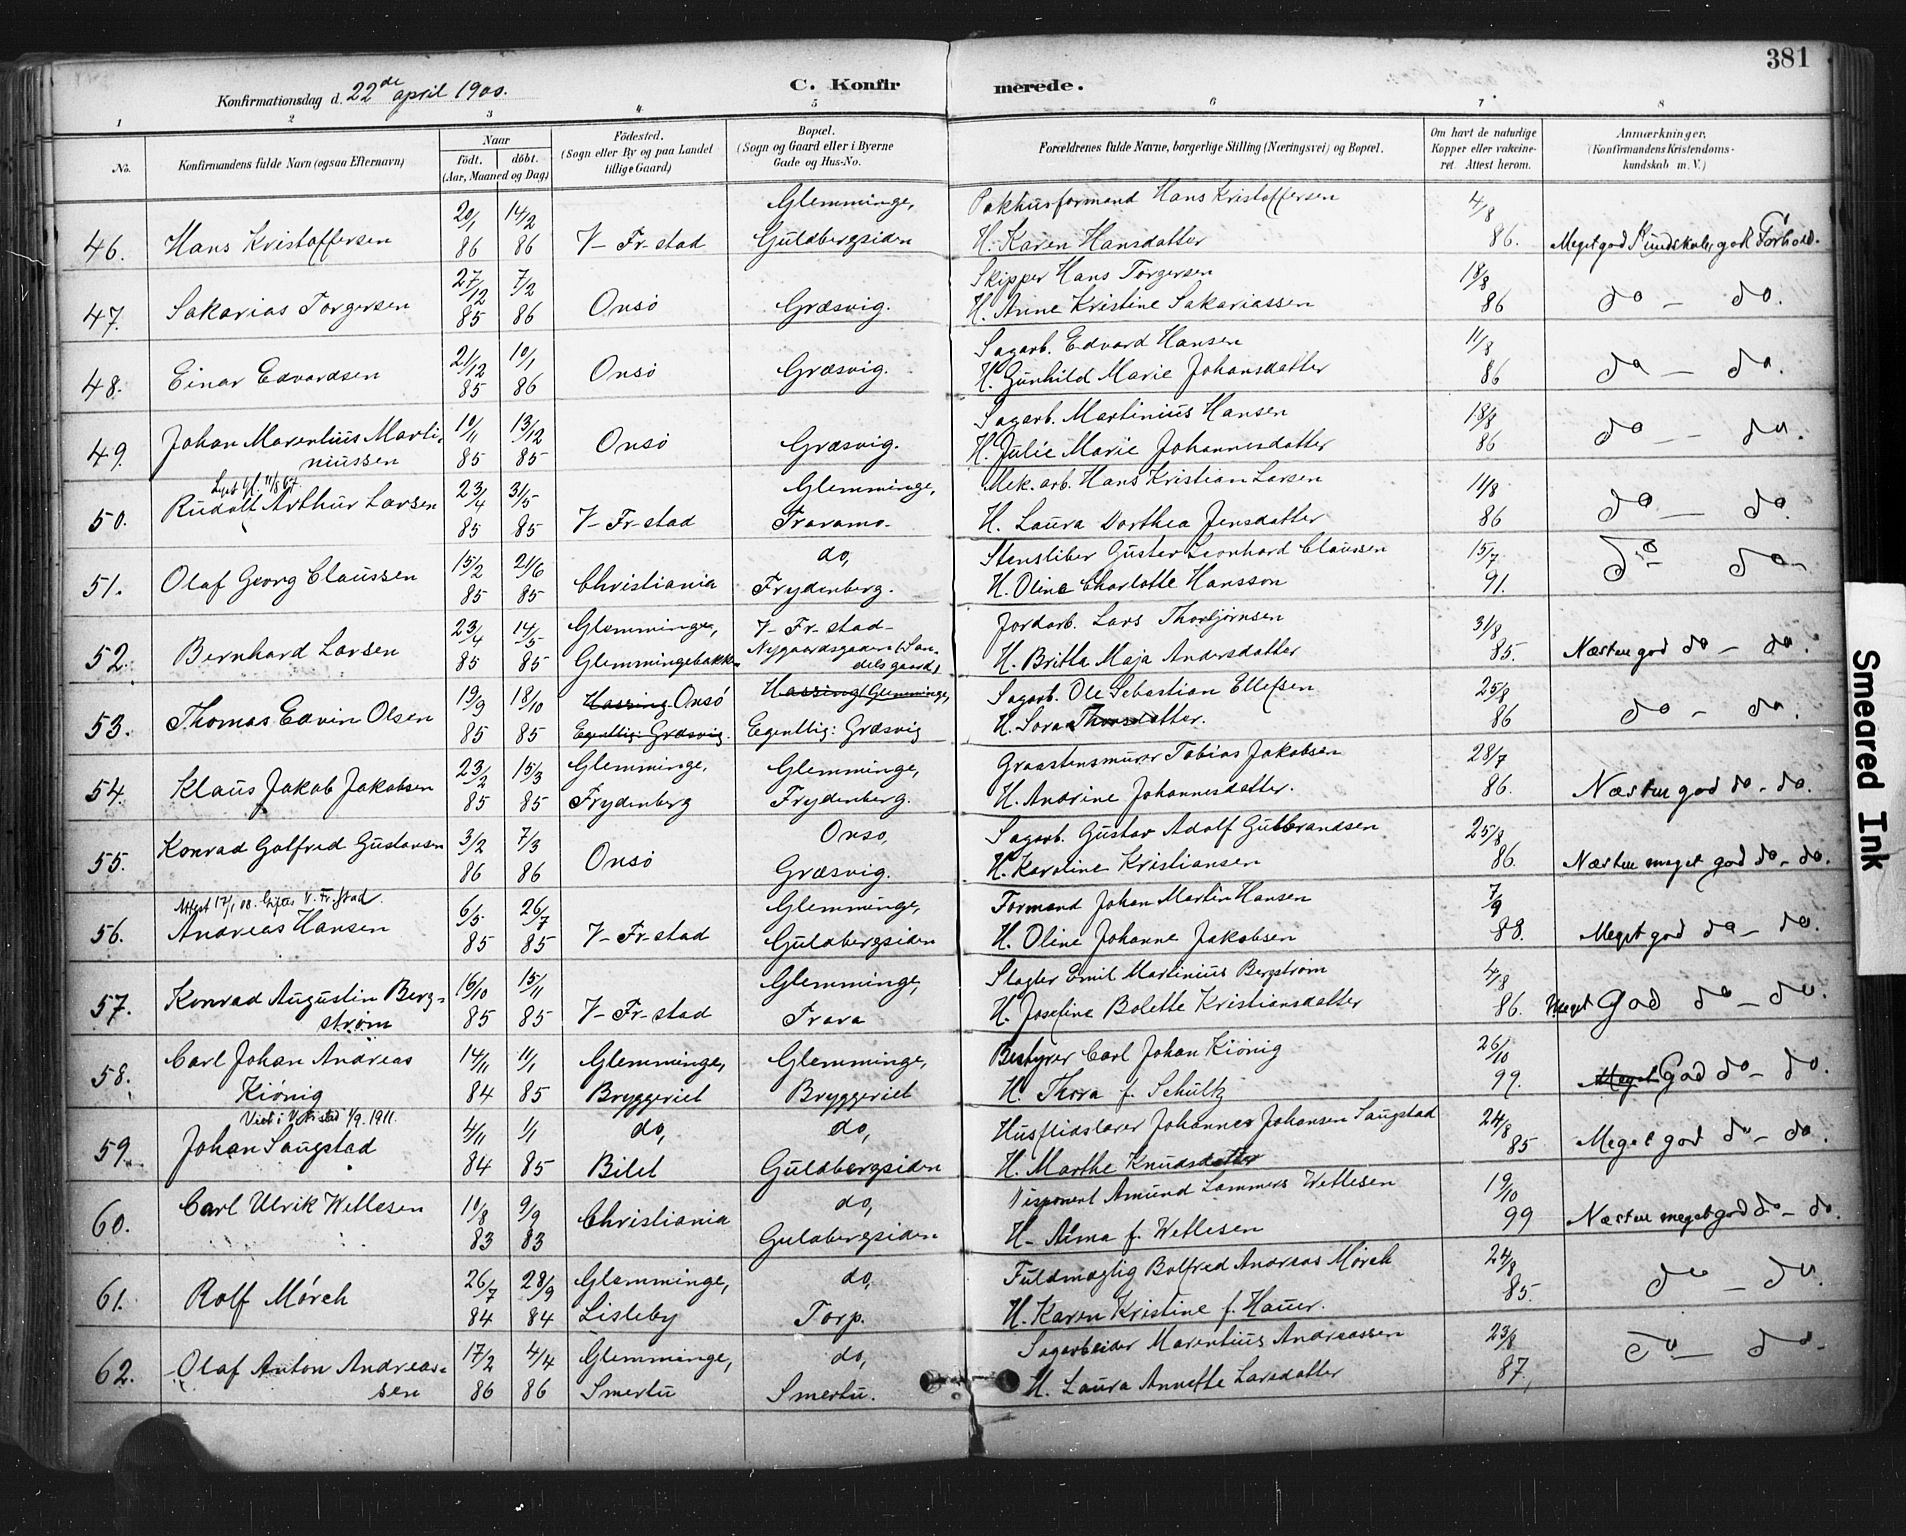 381
Konfirmationsdag d. 22de april 1900.
C. Konfirmerede.
1 2 3 4 5 6 7 8
No.
Konfirmandens fulde Navn (ogsaa Efternavn)
Naar
födt. döbt.
(Aar, Maaned og Dag)
Födested.
(Sogn eller By og paa Landet
tillige Gaard)
Bopæl.
(Sogn og Gaard eller i Byerne
Gade og Hus-No.
Forældrenes fulde Navne, borgerlige Stilling (Næringsvei) og Bopæl.
Om havt de naturlige
Kopper eller vakcine-
ret. Attest herom.
Anmærkninger.
(Konfirmandens Kristendoms-
kundskab m. V.)
20/1 14/2 Glemminge, Pakhusformand Hans Kristoffersen 4/8
46. Hans Kristoffersen 86 86 V- Fr-stad Guldbergsiden H. Karen Hansdatter 86. Meget god Kundskab, god Forhold.
27/12 7/2 Skipper Hans Torgersen 18/8
47. Sakarias Torgersen 85 86 Onsö Græsvig. H. Anne Kristine Sakariassen 86 do - do.
21/12 10/1 Sagarb. Edvard Hansen 11/8
48. Einar Edvardsen 85 86 Onsö Græsvig. H. Gunhild Marie Johansdatter 86 do - do.
Johan Marentius Marti- 10/11 13/12 Sagarb. Martinius Hansen 18/8
49. niussen 85 85 Onsö Græsvig. H. Julie Marie Johannesdatter 86 do - do.
11/8 67.
Rudolf Arthur Larsen 23/4 31/5 Glemminge, Mek. arb. Hans Kristian Larsen 11/8
50. 85 85 V- Fr-stad Traramo. H. Laura Dorthea Jensdatter 86 do - do.
15/2 21/6 do, Stensliber Gustav Leonhard Claussen 15/7
51. Olaf Georg Claussen 85 85 Christiania Frydenberg. H. Oline Charlotte Hansson 91. do - do -
23/4 14/5 Glemminge, V- Fr-stad- Jordarb. Lars Thorbjørnsen 31/8
52. Bernhard Larsen 85 85 Glemmingebakken Nygaardsgaden (San- H. Britta Maja Andersdatter 85. Næsten god do - do.
dels gaard)
19/9 18/10 Hassing Onsö Hassing (Glemminge, Sagarb. Ole Sebastian Ellefsen 25/8
53. Thomas Edvin Olsen 85 85 Egentlig: Græsvig. Egentlig: Græsvig H. Lova Thorsdatter. 86 do - do.
23/2 15/3 Glemminge, Glemminge, Graastensmurer Tobias Jakobsen 28/7
54. Klaus Jakob Jakobsen 85 85 Frydenberg Frydenberg. H. Andrine Johannesdatter. 86. Næsten god do - do.
Konrad Golfred Gustavsen 3/2 7/3 Onsö, Sagarb. Gustav Adolf Gulbrandsen 25/8
55. 86 86 Onsö Græsvig. H. Karoline Kristiansen 86. Næsten meget god do - do.
Attest 17/1 08. Giftes V. Fr.stad.
6/5 26/7 Glemminge, Formand Johan Martin Hansen 7/9
56. Andreas Hansen 85 85 V- Fr-stad Guldbergsiden H. Oline Johanne Jakobsen 88. Meget god do - do.
Konrad Augustin Berg- 16/10 15/11 Glemminge, Slagter Emil Martinius Bergstrøm 4/8
57. strøm 85 85 V- Fr-stad Trara H. Josefine Bolette Kristiansdatter 86. Meget God do - do.
Carl Johan Andreas 14/11 11/1 Glemminge, Glemminge, Bestyrer Carl Johan Kiönig 26/10
58. Kiönig 84 85 Bryggeriet Bryggeriet H. Thora f. Schultz 99. Meget God do - do.
Viet i V. Fr.stad 1/9. 1911.
4/11 1/1 do, do, Husflidslærer Johannes Johansen Saugstad 24/8
59. Johan Saugstad 84 85 Bilet Guldbergsiden H. Marthe Knudsdatter 85 Meget god do - do.
Carl Ulrik Wetlesen 10/8 9/9 do, Disponent Amund Lammers Wetlesen 19/10
60. 83 83 Christiania Guldbergsiden H. Alma f. Wetlesen 99 Næsten meget god do - do.
26/7 28/9 Glemminge, do, Fuldmægtig Bolfred Andreas Mørch 24/8
61. Rolf Mørch 84 84 Lisleby Torp. H. Karen Kristine f. Hauer. 85. do - do.
Olaf Anton Andreas- 17/2 4/4 Glemminge, do, Sagarbeider Marentius Andreassen 23/8
62. sen 86 86 Smertu Smertu. H. Laura Annette Larsdatter 87, do - do -
Smeared Ink